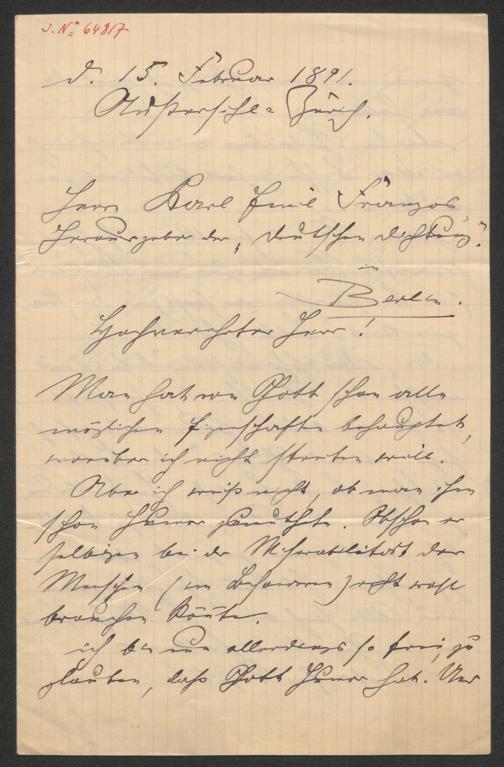 J. No 64317
d. 15. Februar 1891.
Außersihl-Zürich.
Herrn Karl Emil Franzos
Herausgeber der „Deutschen Dichtung".
in
Berlin.
Hochverehrter Herr!
Man hat von Gott schon alle
möglichen Eigenschaften behauptet,
worüber ich nicht streiten will.
Aber ich weiß nicht, ob man ihm
schon Humor zumuthete. Obschon er
selbigen bei der Miserabilität der
Menschen (im Besonderen) recht wohl
brauchen könnte.
ich bin nun allerdings so frei, zu
glauben, daß Gott Humor hat. Und